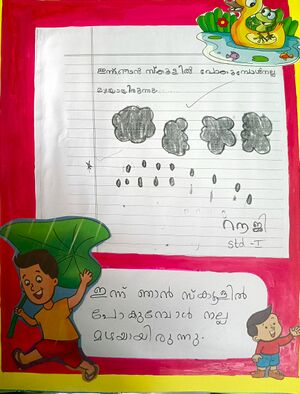 ഇന്ന് ഞാൻ സ്കൂളിൽ പോകുമ്പോൾ നല്ല
മഴയായിരുന്നു.
std - I
ഇന്ന് ഞാൻ സ്കൂളിൽ
പോകുമ്പോൾ നല്ല
മഴയായിരുന്നു.